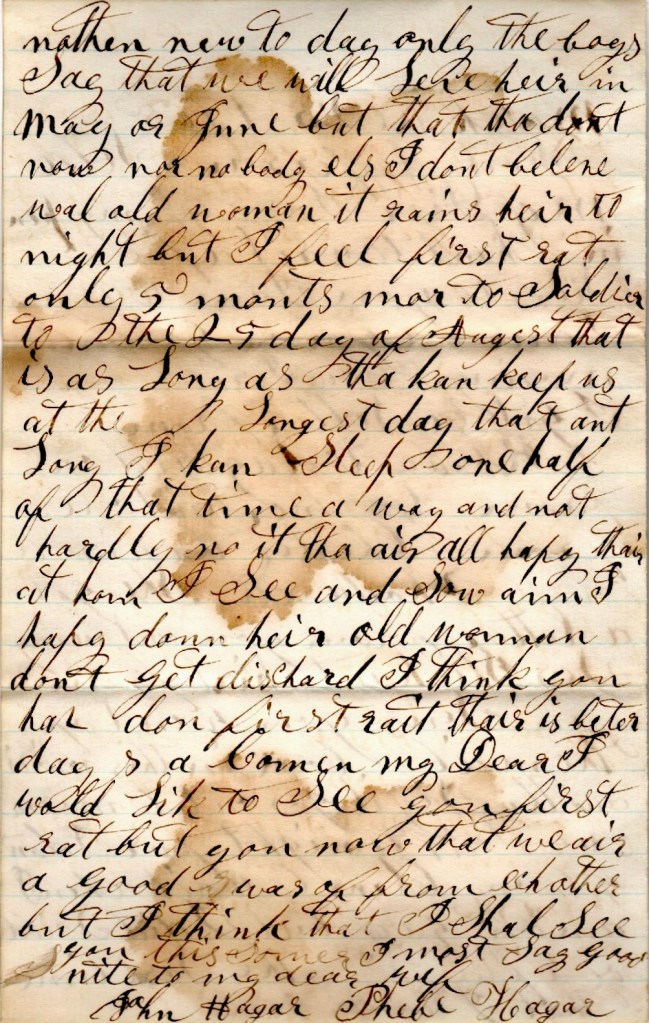 nothen new to day only the boys
Say that we will Leve heir in
May or June but that tha dont
now nor nobody els I dont beleve
wal old woman it rains heir to
night but I feel first rat
only 5 monts mor to Soldier
to the 25 day of Augest that
is as Long as tha kan keep us
at the Longest day that ant
Long I kan Sleep one half
of that time a way and not
hardly no it tha air all hapy thair
at hom I See and Sow aim I
hapy down heir old womman
dont Get dishard I think you
hav don first rait thair is beter
day s a Comen my Dear I
wold Lik to See you first
rat but you now that we air
a good was of from ech other
but I think that I Shal See
you this Somer I most Say good
nite to my dear wif
John Hagar Phebe Hagar